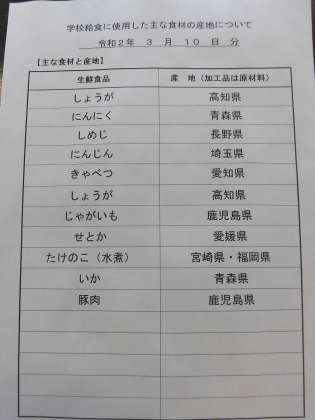 学校給食に使用した主な食材の産地について
令和2年 3 月 10 日 分
【主な食材と産地】
生鮮食品 産 地（加工品は原材料）
しょうが 高知県
にんにく 青森県
しめじ 長野県
にんじん 埼玉県
きゃべつ 愛知県
しょうが 高知県
じゃがいも 鹿児島県
せとか 愛媛県
たけのこ（水煮） 宮崎県・福岡県
いか 青森県
豚肉 鹿児島県